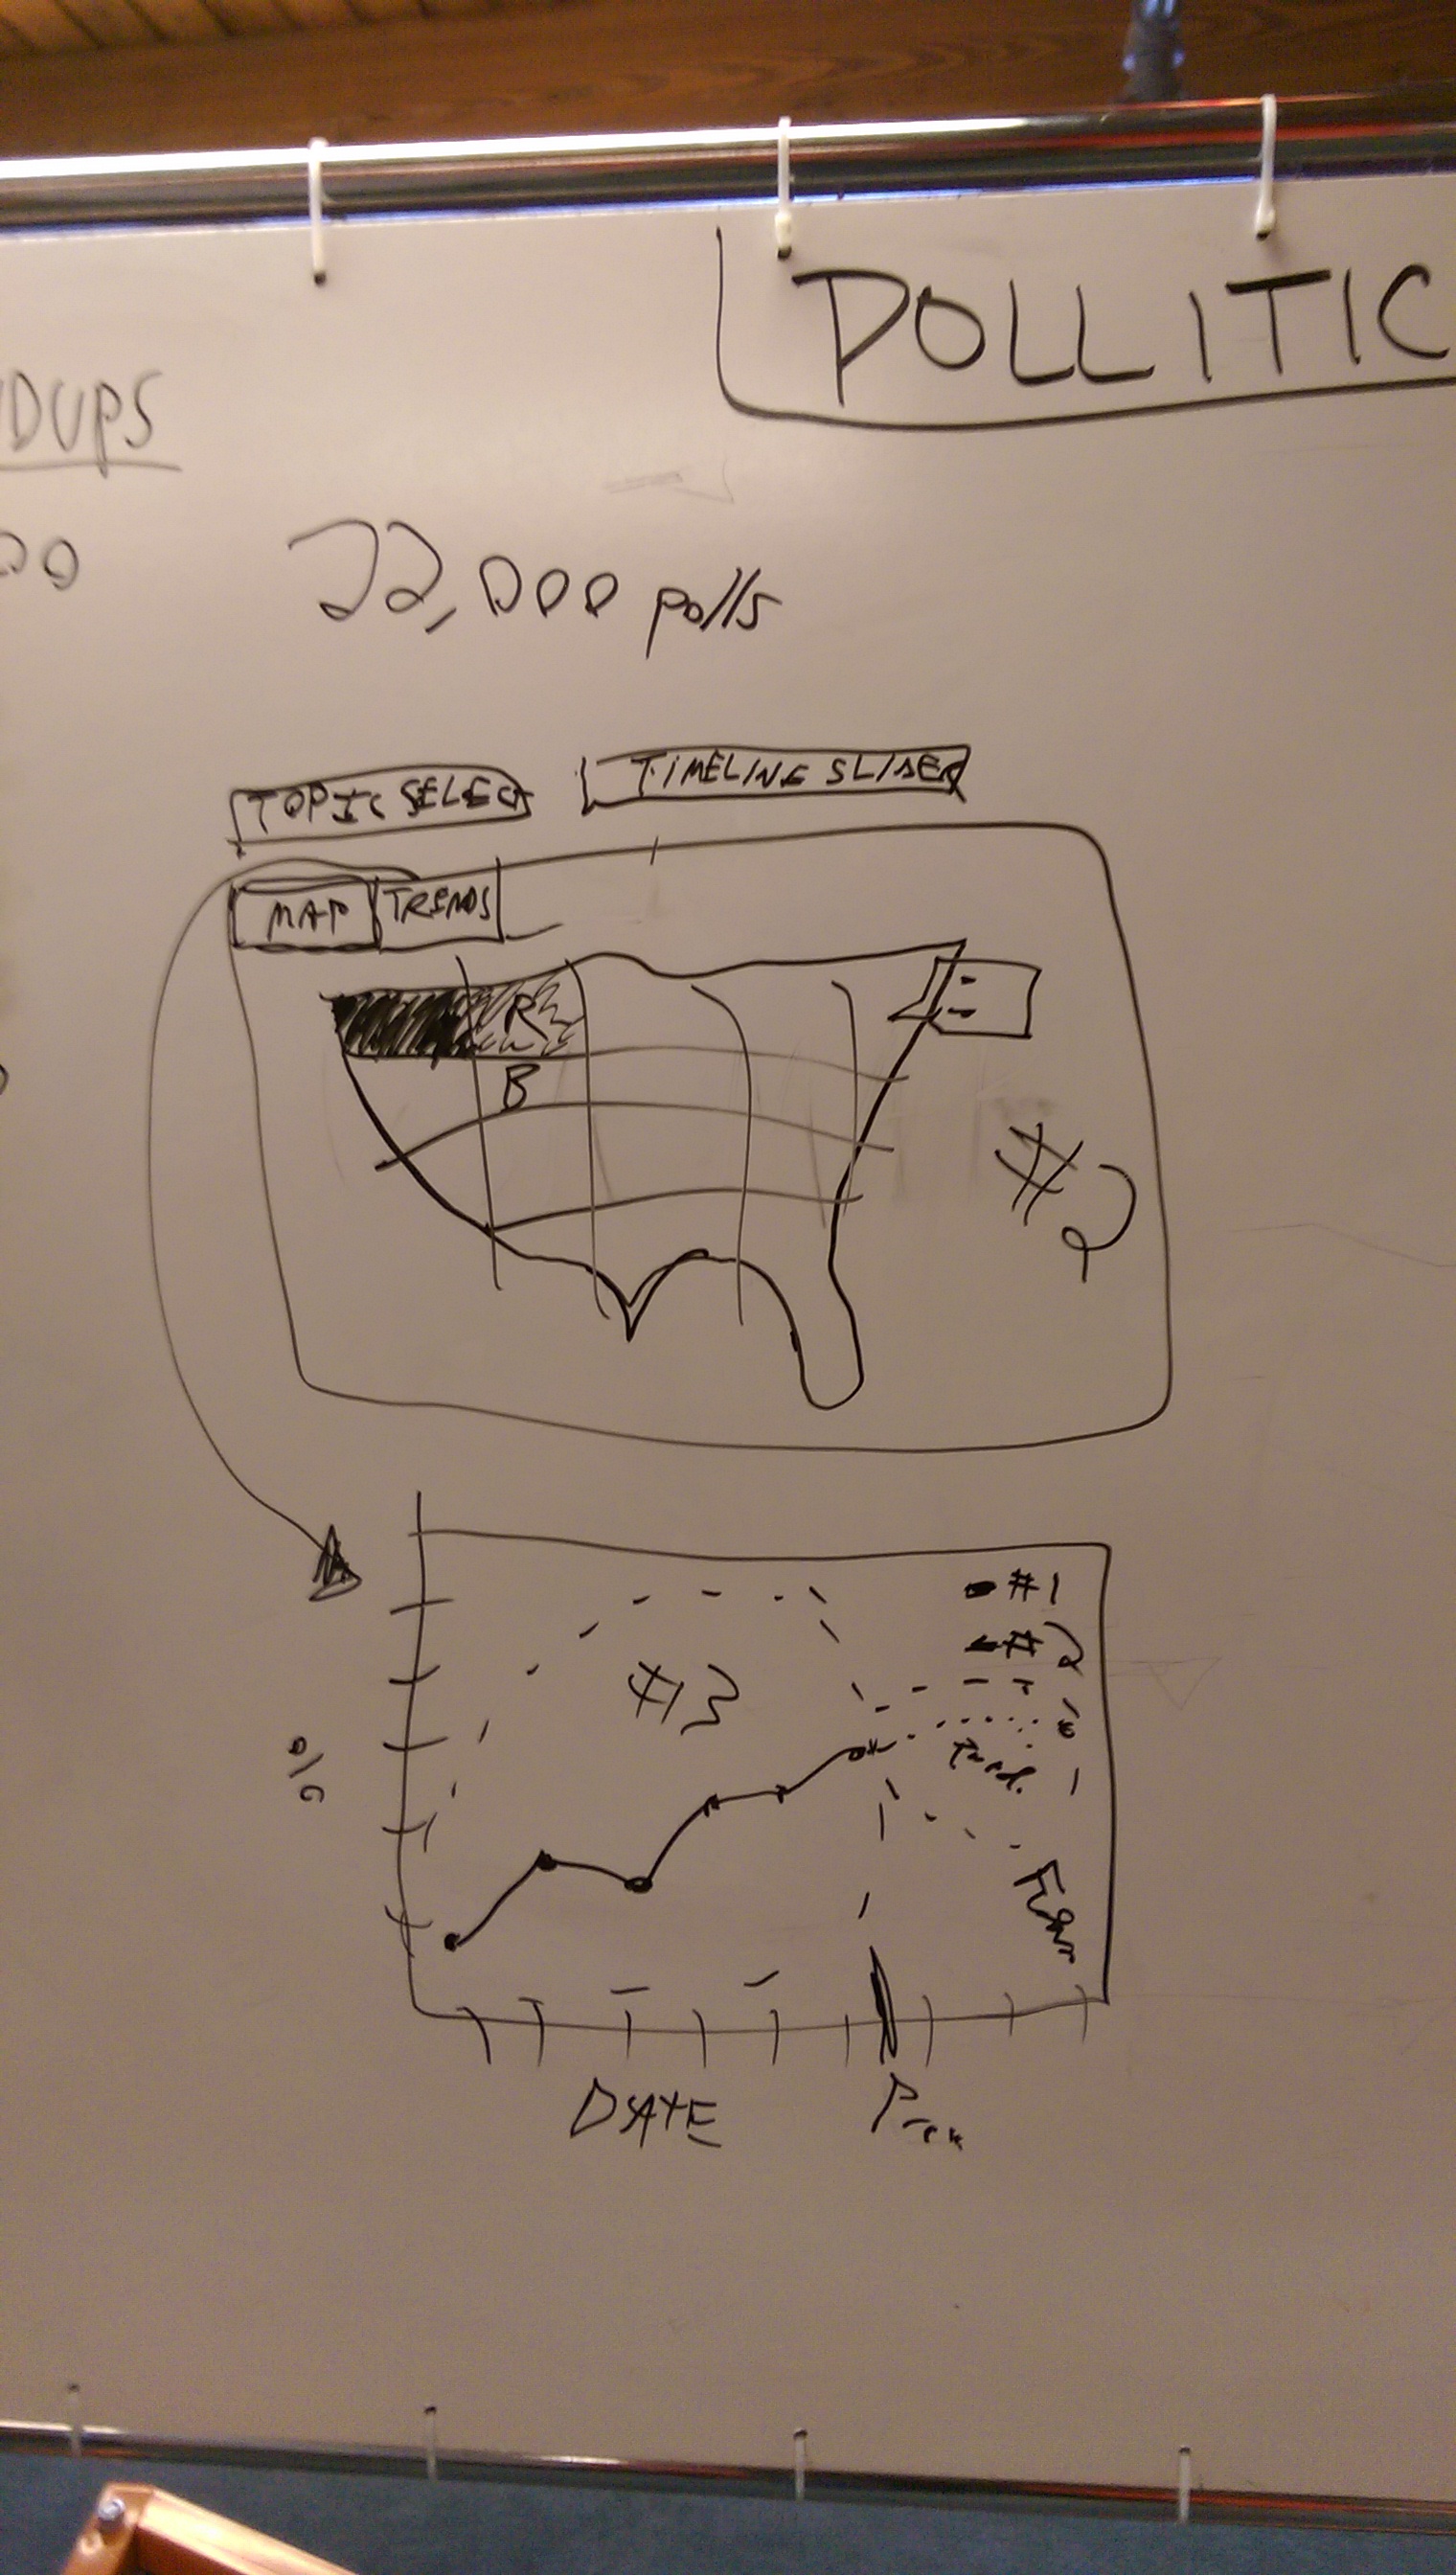 POLLITIC
DUPS
00
22,000 polls
TOPIC SELECT
TIMELINE SLIDER
MAP TRENDS
R
B
#2
#1
#2
#3
%
DATE